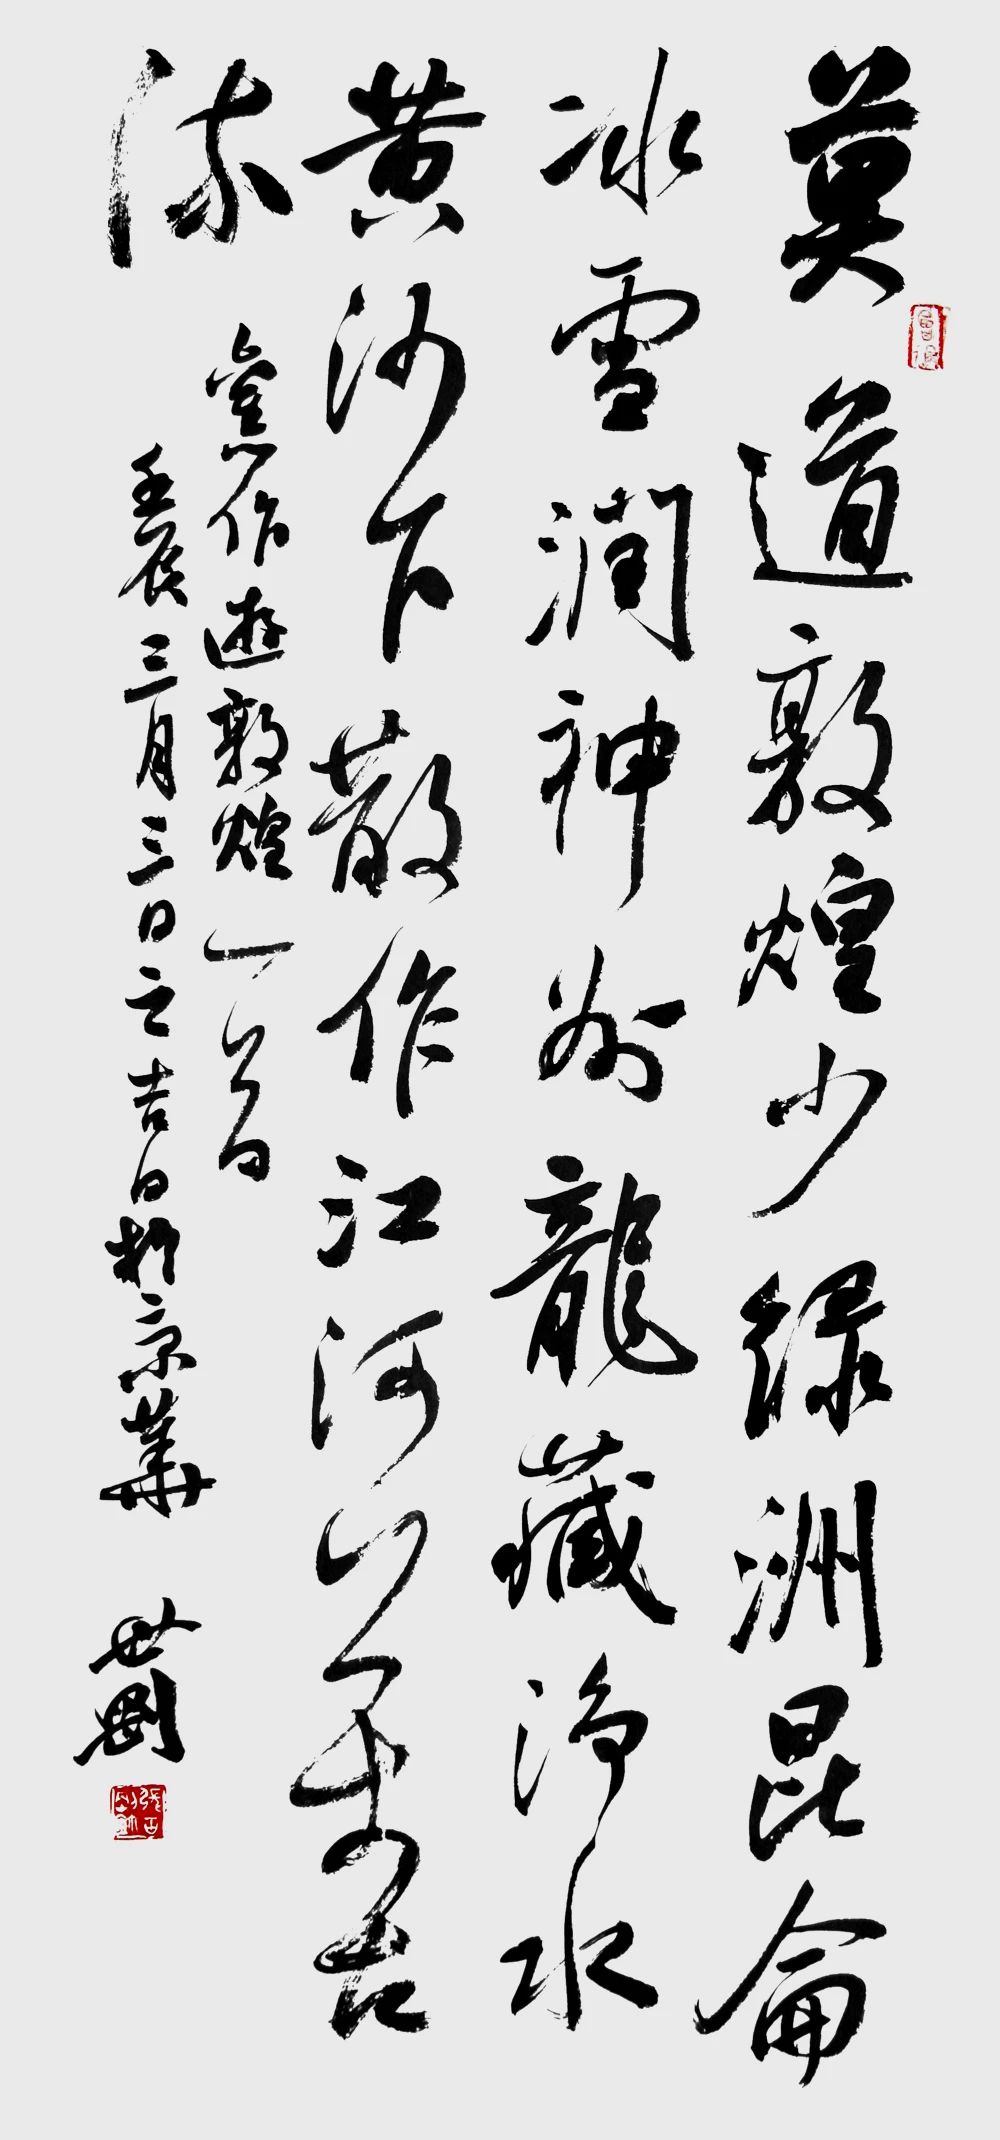 莫道敦煌少緑洲昆侖
冰雪潤神州龍藏浄水
黄沙下散作江河萬古
流
舊作遊敦煌一首
壬辰三月三日之吉日於京華 世剛